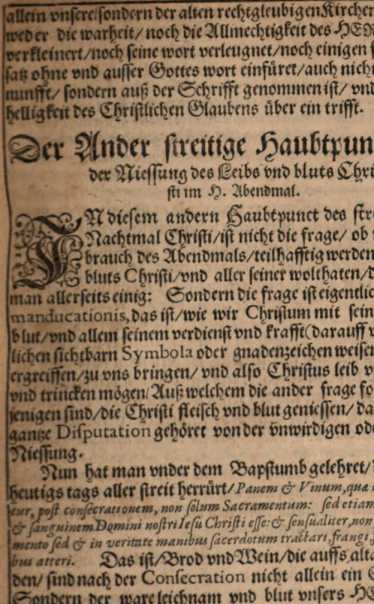 allein vnsere/sondern der alten rechtgleubigen Kirchen
weder die warheit/noch die Allmechtigkeit des HER
verkleinert/noch seine wort verleugnet/noch einigen
satz ohne vnd ausser Gottes wort einfüret/auch nicht
nunfft/sondern auß der Schrifft genommen ist/vnd
helligkeit des Christlichen Glaubens über ein trifft.
Der Ander streitige Haubtpun
der Niessung des Leibs vnd bluts Chri
sti im H. Abendmal.
IN diesem andern Haubtpunct des stre
Nachtmal Christi/ist nicht die frage/ob
brauch des Abendmals/teilhafftig werden
bluts Christi/vnd aller seiner wolthaten/d
man allerseits einig: Sondern die frage ist eigentlic
manducationis, das ist/wie wir Christum mit sein
blut/vnd allem seinem verdienst vnd krafft(darauff v
lichen sichtbarn Symbola oder gnadenzeichen weisen
ergreiffen/zu vns bringen/vnd also Christus leib v
vnd trincken mögen/Auß welchem die ander frage fo
jenigen sind/die Christi fleisch vnd blut geniessen/da
gantze Disputation gehöret von der vnwirdigen ode
Niessung.
Nun hat man vnder dem Bapstumb gelehret/
heutigs tags aller streit herrürt/Panem & Vinum, quæ i
tur, post consecrationem, non solùm Sacramentum: sed etiam
& sanguinem Domini nostri Iesu Christi esse: & sensualiter, non
mento sed & in veritate manibus sacerdotum tractari, frangi,
bus atteri. Das ist/Brod vnd Wein/die auffs alta
den/sind nach der Consecration nicht allein ein
Sondern der ware leichnam vnd blut vnsers HE